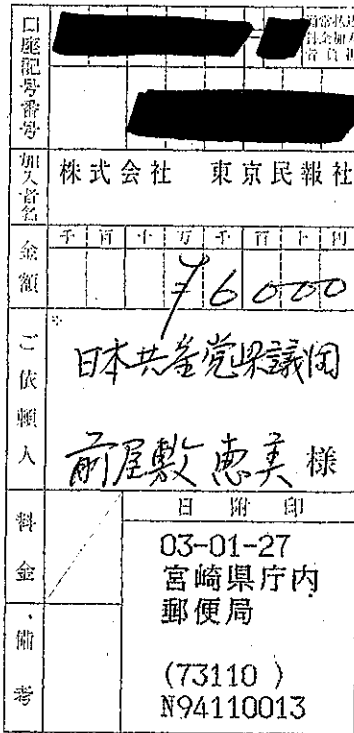 口座記号番号
加入者名
株式会社 東京民報社
金額
千 百 十 万 千 百 十 円
¥6000
ご依頼人
※
日本共産党県議団
前屋敷恵美 様
料金
日附印
03-01-27
宮崎県庁内
郵便局
(73110 )
N94110013
備考